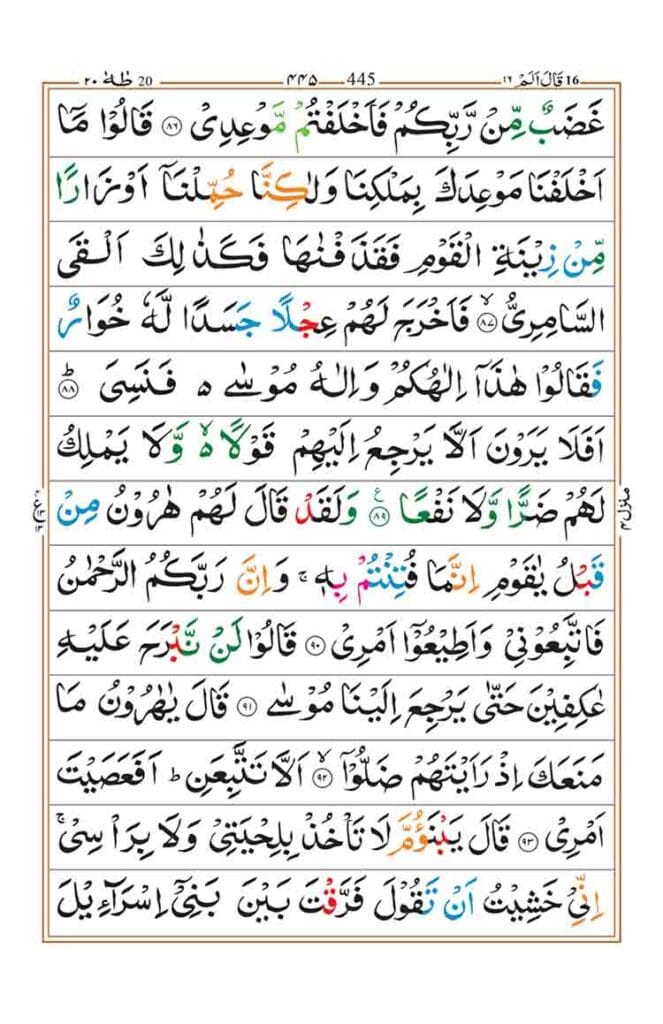 16 قَالَ اَلَمْ ١٦ 445 ۴۴۵ 20 طٰهٰ ٢٠
غَضَبٌ مِّنْ رَّبِّكُمْ فَاَخْلَفْتُمْ مَّوْعِدِیْ ﴿۸۶﴾ قَالُوْا مَاۤ
اَخْلَفْنَا مَوْعِدَكَ بِمَلْكِنَا وَلٰكِنَّا حُمِّلْنَاۤ اَوْزَارًا
مِّنْ زِیْنَةِ الْقَوْمِ فَقَذَفْنٰهَا فَكَذٰلِكَ اَلْقَی
السَّامِرِیُّ ﴿۸۷﴾ۙ فَاَخْرَجَ لَهُمْ عِجْلًا جَسَدًا لَّهٗ خُوَارٌ
فَقَالُوْا هٰذَاۤ اِلٰهُكُمْ وَاِلٰهُ مُوْسٰی ەۚ فَنَسِیَ ﴿۸۸﴾ؕ
اَفَلَا یَرَوْنَ اَلَّا یَرْجِعُ اِلَیْهِمْ قَوْلًا ەۙ وَّلَا یَمْلِكُ
لَهُمْ ضَرًّا وَّلَا نَفْعًا ﴿۸۹﴾ۧ وَلَقَدْ قَالَ لَهُمْ هٰرُوْنُ مِنْ
قَبْلُ یٰقَوْمِ اِنَّمَا فُتِنْتُمْ بِهٖ ۚ وَاِنَّ رَبَّكُمُ الرَّحْمٰنُ
فَاتَّبِعُوْنِیْ وَاَطِیْعُوْۤا اَمْرِیْ ﴿۹۰﴾ قَالُوْا لَنْ نَّبْرَحَ عَلَیْهِ
عٰكِفِیْنَ حَتّٰی یَرْجِعَ اِلَیْنَا مُوْسٰی ﴿۹۱﴾ قَالَ یٰهٰرُوْنُ مَا
مَنَعَكَ اِذْ رَاَیْتَهُمْ ضَلُّوْۤا ﴿۹۲﴾ۙ اَلَّا تَتَّبِعَنِ ؕ اَفَعَصَیْتَ
اَمْرِیْ ﴿۹۳﴾ قَالَ یَبْنَؤُمَّ لَا تَاْخُذْ بِلِحْیَتِیْ وَلَا بِرَاْسِیْ ۚ
اِنِّیْ خَشِیْتُ اَنْ تَقُوْلَ فَرَّقْتَ بَیْنَ بَنِیْۤ اِسْرَآءِیْلَ
منزل ۴